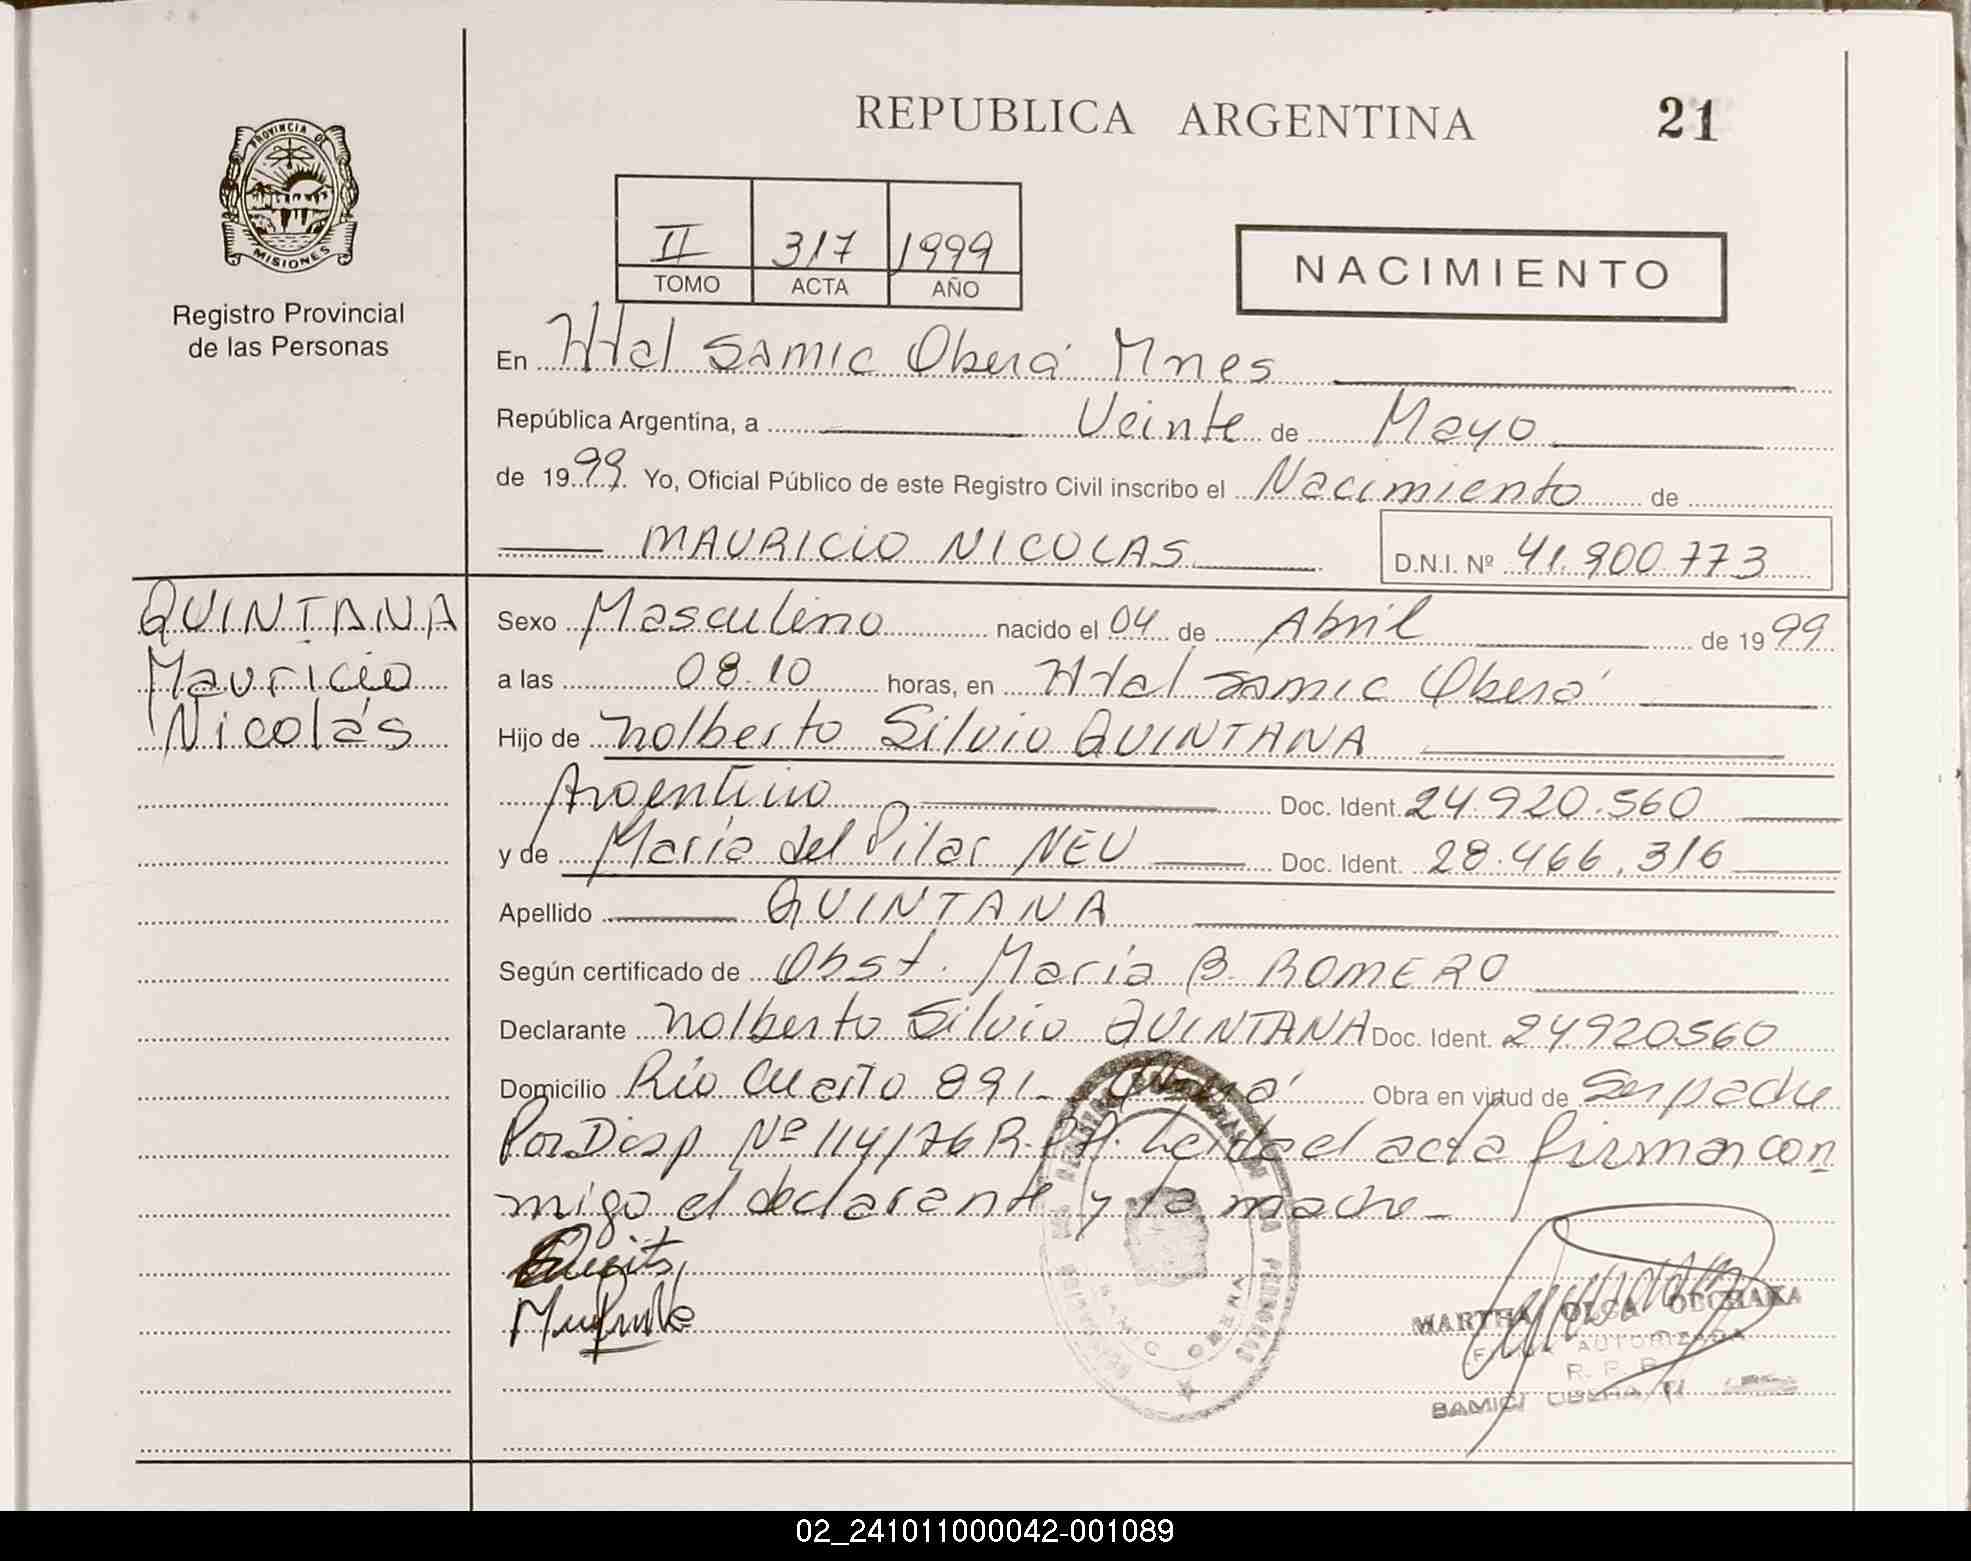 REPUBLICA ARGENTINA
21
PROVINCIA DE
MISIONES
Registro Provincial
de las Personas
II 317 1999
TOMO ACTA AÑO
NACIMIENTO
En Htal SAMIC Oberá Mnes
República Argentina, a Veinte de Mayo
de 1999 Yo, Oficial Público de este Registro Civil inscribo el Nacimiento de
MAURICIO NICOLAS
D.N.I. Nº 41.900.773
QUINTANA
Mauricio
Nicolás
Sexo Masculino nacido el 04 de Abril de 1999
a las 08.10 horas, en Htal Samic Oberá
Hijo de Nolberto Silvio QUINTANA
Argentino Doc. Ident. 24.920.560
y de María del Pilar NEU Doc. Ident. 28.466.316
Apellido QUINTANA
Según certificado de Obst. María B. ROMERO
Declarante Nolberto Silvio QUINTANA Doc. Ident. 24920560
Domicilio Río Cuarto 891 - Oberá Obra en virtud de Ser padre
Por Disp Nº 114/76 R.P.P. Leída el acta firman con
migo el declarante y la madre -
MARTHA OLGA
FIRMA AUTORIZADA
R. P. P.
SAMIC/ OBERA
02_241011000042-001089